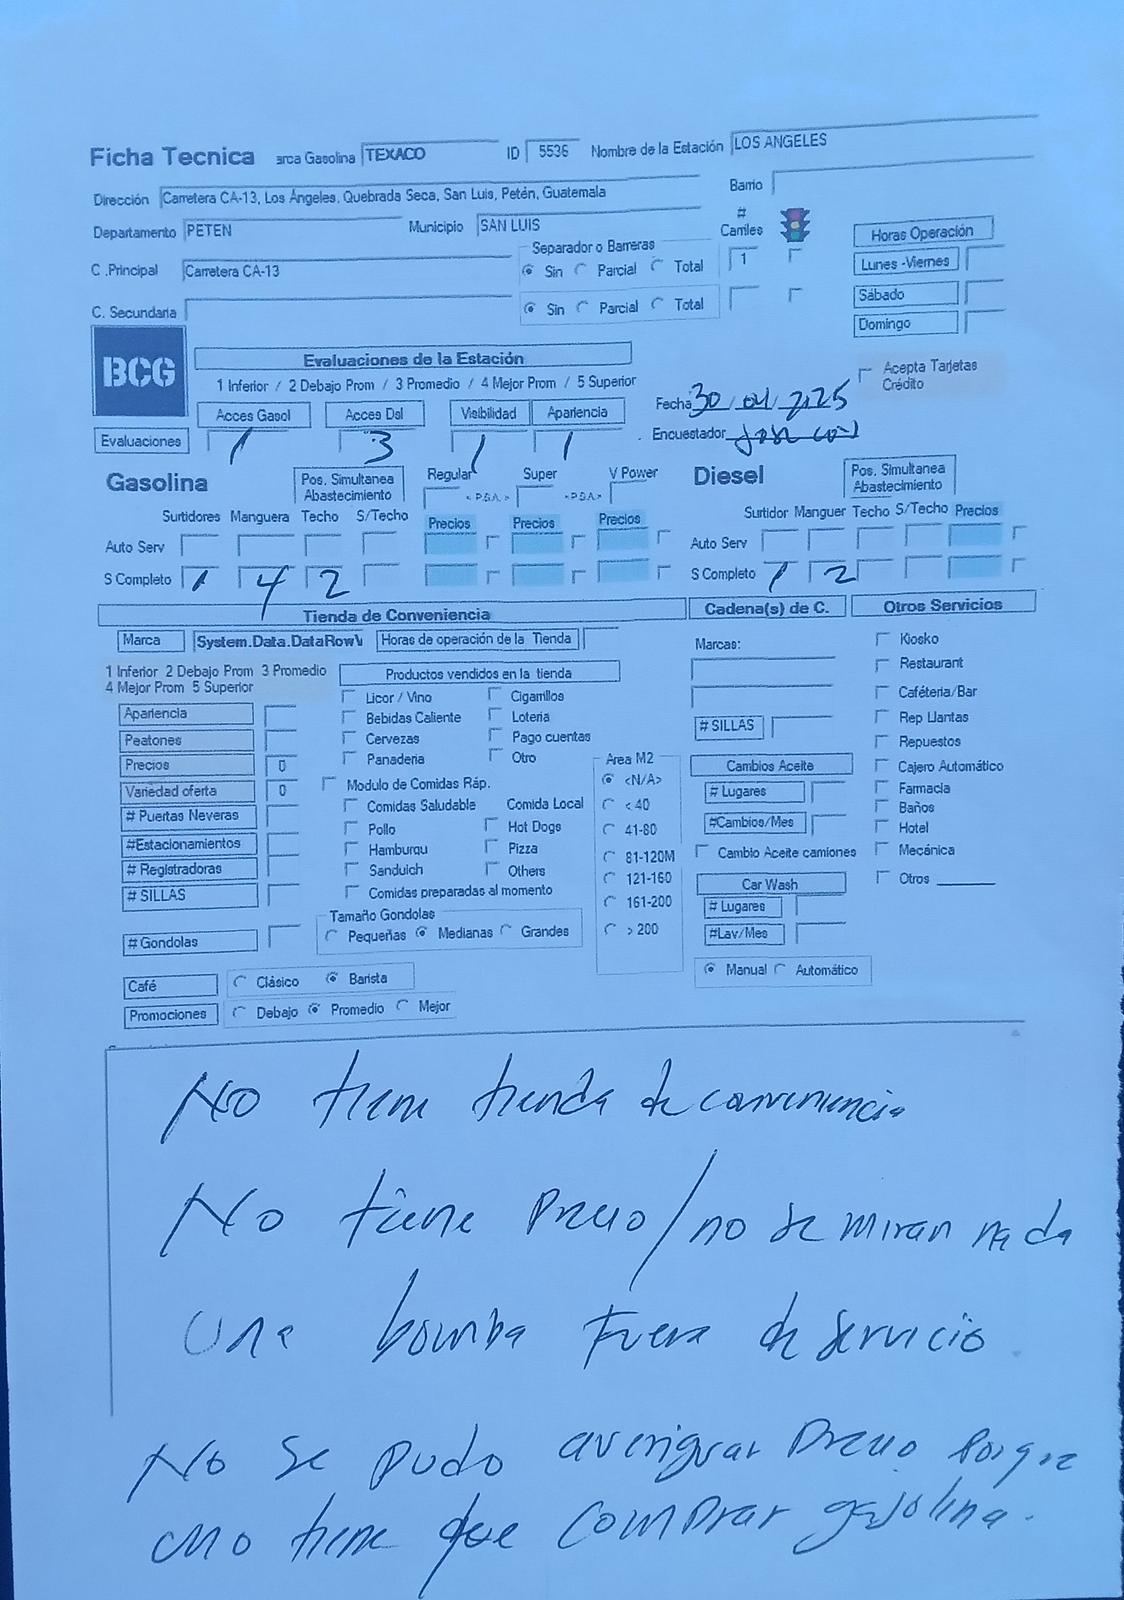 Ficha Tecnica arca Gasolina TEXACO ID 5536 Nombre de la Estación LOS ANGELES
Dirección Carretera CA-13, Los Ángeles, Quebrada Seca, San Luis, Petén, Guatemala Barrio
Departamento PETEN Municipio SAN LUIS # Carriles Horas Operación
C .Principal Carretera CA-13 Separador o Barreras Sin Parcial Total 1 Lunes -Viernes
C. Secundaria Sin Parcial Total Sábado
Domingo
BCG Evaluaciones de la Estación
1 Inferior / 2 Debajo Prom / 3 Promedio / 4 Mejor Prom / 5 Superior Acepta Tarjetas Crédito
Acces Gasol Acces Dsl Visibilidad Apariencia Fecha 30/04/2025
Evaluaciones 1 3 1 1 Encuestador
Gasolina Pos. Simultanea Abastecimiento Regular < P.S.A. > Super <P.S.A.> V Power Diesel Pos. Simultanea Abastecimiento
Surtidores Manguera Techo S/Techo Precios Precios Precios Surtidor Manguer Techo S/Techo Precios
Auto Serv Auto Serv
S Completo 1 4 2 S Completo 1 2
Tienda de Conveniencia Cadena(s) de C. Otros Servicios
Marca System.Data.DataRowV Horas de operación de la Tienda Marcas: Kiosko
1 Inferior 2 Debajo Prom 3 Promedio Productos vendidos en la tienda Restaurant
4 Mejor Prom 5 Superior Licor / Vino Cigarrillos Caféteria/Bar
Apariencia Bebidas Caliente Loteria # SILLAS Rep Llantas
Peatones Cervezas Pago cuentas Repuestos
Precios 0 Panaderia Otro Area M2 Cambios Aceite Cajero Automático
Variedad oferta 0 Modulo de Comidas Ráp. <N/A> # Lugares Farmacia
# Puertas Neveras Comidas Saludable Comida Local < 40 Baños
#Estacionamientos Pollo Hot Dogs 41-80 #Cambios/Mes Hotel
# Registradoras Hamburqu Pizza 81-120M Cambio Aceite camiones Mecánica
# SILLAS Sanduich Others 121-160 Car Wash Otros
Comidas preparadas al momento 161-200 # Lugares
# Gondolas Tamaño Gondolas Pequeñas Medianas Grandes > 200 #Lav/Mes
Café Clásico Barista Manual Automático
Promociones Debajo Promedio Mejor
No tiene tienda de conveniencia
No tiene Precio / no se miran nada
Una bomba Fuera de servicio.
No se pudo averiguar Precio Porque
uno tiene que comprar gasolina.